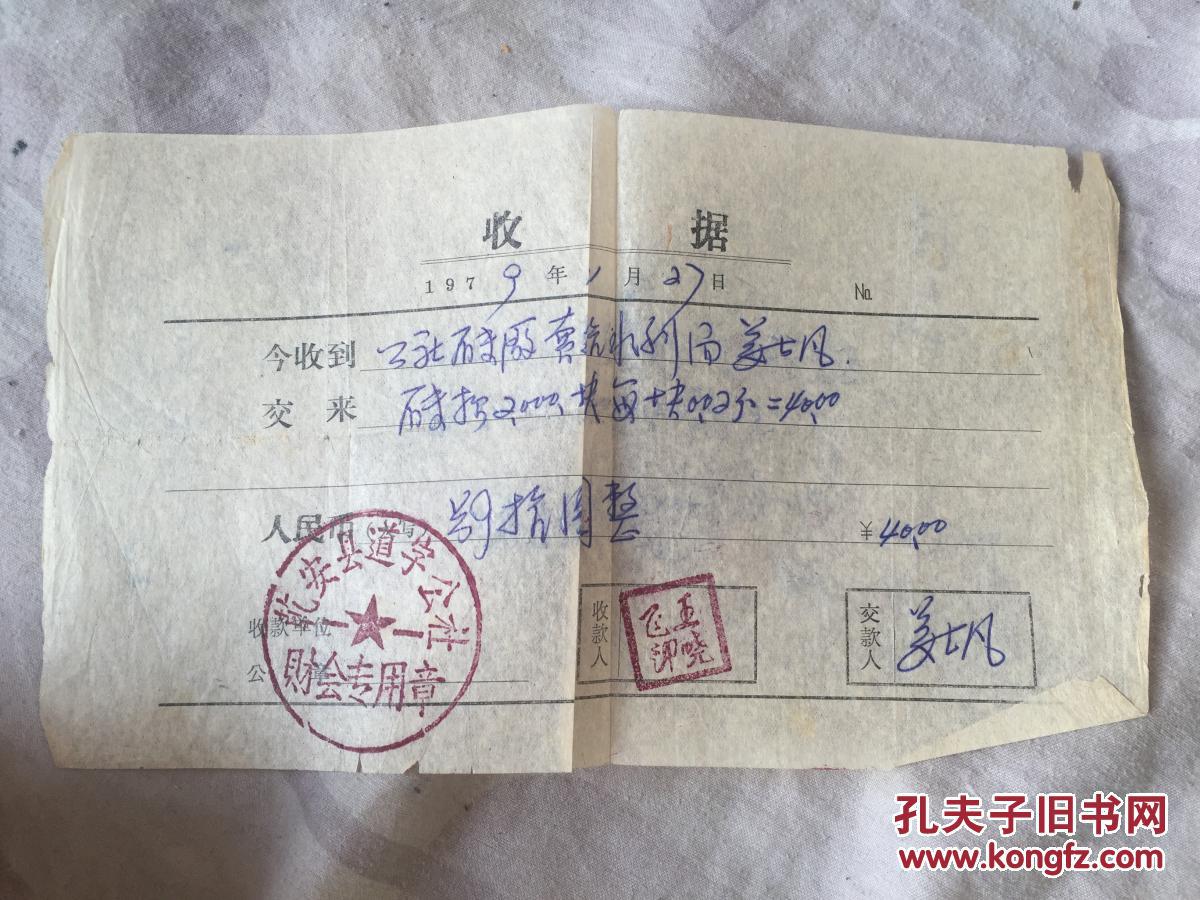 收 据
1979年1月27日 №
今收到 公社砖厂 水利局姜士凤.
交来 砖 2,000块每块0.02分=40.00
人民币 肆拾圆整 ¥40.00
乾安县道字公社
财会专用章
收款单位
公章
收款人
王晓飞印
交款人 姜士凤
孔夫子旧书网
www.kongfz.com